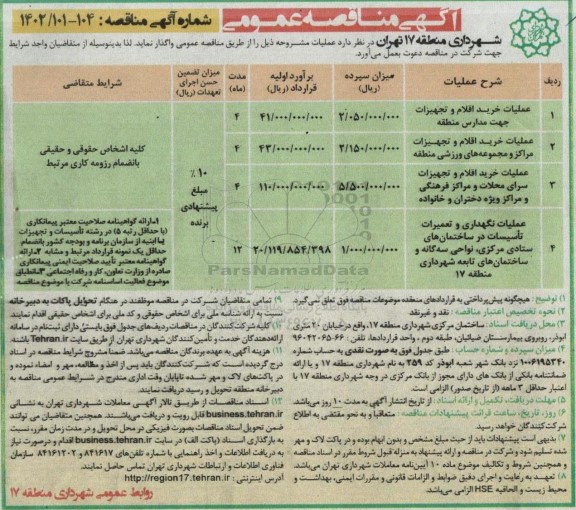 آگهی مناقصه عمومی
شماره آگهی مناقصه : ۱۰۴-۱۴۰۲/۱۰۱
شهرداری منطقه ۱۷ تهران در نظر دارد عملیات مشروحه ذیل را از طریق مناقصه عمومی واگذار نماید. لذا بدینوسیله از متقاضیان واجد شرایط
جهت شرکت در مناقصه دعوت بعمل می‌آورد.
ردیف
شرح عملیات
میزان سپرده (ریال)
برآورد اولیه قرارداد (ریال)
مدت (ماه)
میزان تضمین حسن اجرای تعهدات (ریال)
شرایط متقاضی
۱
عملیات خرید اقلام و تجهیزات
جهت مدارس منطقه
۲/۰۵۰/۰۰۰/۰۰۰
۴۱/۰۰۰/۰۰۰/۰۰۰
۴
۲
عملیات خرید اقلام و تجهیزات
مراکز و مجموعه‌های ورزشی منطقه
۲/۱۵۰/۰۰۰/۰۰۰
۴۳/۰۰۰/۰۰۰/۰۰۰
۴
۳
عملیات خرید اقلام و تجهیزات
سرای محلات و مراکز فرهنگی
و مراکز ویژه دختران و خانواده
۵/۵۰۰/۰۰۰/۰۰۰
۱۱۰/۰۰۰/۰۰۰/۰۰۰
۴
کلیه اشخاص حقوقی و حقیقی
بانضمام رزومه کاری مرتبط
۱۰٪
مبلغ
پیشنهادی
برنده
۴
عملیات نگهداری و تعمیرات
تأسیسات در ساختمان‌های
ستادی مرکزی، نواحی سه‌گانه و
ساختمان‌های تابعه شهرداری
منطقه ۱۷
۱/۰۰۰/۰۰۰/۰۰۰
۲۰/۱۱۹/۸۵۴/۳۹۸
۱۲
۱ـ ارائه گواهینامه صلاحیت معتبر پیمانکاری
(با حداقل رتبه ۵) در رشته تأسیسات و تجهیزات
یا ابنیه از سازمان برنامه و بودجه کشور بانضمام
حداقل یک نمونه قرارداد مرتبط و مشابه ۲ـ ارائه
گواهینامه معتبر تأیید صلاحیت ایمنی پیمانکاری
صادره از وزارت تعاون، کار و رفاه اجتماعی ۳ـ انطباق
موضوع فعالیت اساسنامه شرکت با موضوع مناقصه
ParsNamadData
۱) توضیح : هیچگونه پیش‌پرداختی به قراردادهای منعقده موضوعات مناقصه فوق تعلق نمی‌گیرد.
۲) نحوه تخصیص اعتبار مناقصه : نقد و غیرنقد
۳) محل دریافت اسناد : ساختمان مرکزی شهرداری منطقه ۱۷، واقع در خیابان ۲۰ متری
ابوذر، روبروی بیمارستان ضیائیان، طبقه دوم ، واحد قراردادها، تلفن : ۶۶-۹۶۰۴۲۰۶۵
۴) میزان سپرده و شماره حساب : طبق جدول فوق به صورت نقدی به حساب شماره
۱۰۰۶۱۹۵۳۴۰ نزد بانک شهر شعبه ابوذر کد ۲۵۹ به نام شهرداری منطقه ۱۷ و یا ارائه
ضمانتنامه بانکی از بانک های دارای مجوز از بانک مرکزی در وجه شهرداری منطقه ۱۷ با
اعتبار حداقل ۳ ماهه (از تاریخ صدور) الزامی است.
۵) مهلت دریافت، تکمیل و ارائه اسناد : از تاریخ انتشار آگهی به مدت ۱۰ روز می‌باشد.
۶) روز، تاریخ، ساعت قرائت پیشنهادات مناقصه : متعاقبا و به نحو مقتضی به اطلاع
شرکت‌کنندگان خواهد رسید.
۷) بدیهی است پیشنهادات باید از حیث مبلغ مشخص و بدون ابهام بوده و در پاکت لاک و مهر
شده تسلیم شود و شرکت در مناقصه و ارائه پیشنهاد به منزله قبول شروط مقرر در اسناد مناقصه
و همچنین شروط و تکالیف موضوع ماده ۱۰ آیین‌نامه معاملات شهرداری تهران می‌باشد.
۸) تعهد به رعایت و اجرای دقیق ضوابط و الزامات قانونی و مقررات ایمنی، بهداشت و
محیط زیست و الحاقیه HSE الزامی می‌باشد.
۹) تمامی متقاضیان شرکت در مناقصه موظفند در هنگام تحویل پاکات به دبیرخانه
نسبت به ارائه شناسه ملی برای اشخاص حقوقی و کد ملی برای اشخاص حقیقی اقدام نمایند.
۱۰) کلیه شرکت‌کنندگان در مناقصات ردیف‌های جدول فوق بایستی دارای ثبت‌نام در سامانه
ارائه‌دهندگان خدمت و تأمین‌کنندگان شهرداری تهران از طریق سایت Tehran.ir باشند.
۱۱) هزینه آگهی به عهده برندگان مناقصه می‌باشد. ضمنا مشروح شرایط مناقصه در اسناد
درج گردیده است که شرکت‌کنندگان باید پس از اخذ و مطالعه، مهر و امضاء نموده و
در پاکت‌های لاک و مهر شده تا پایان وقت اداری مندرج در شرایط عمومی مناقصه به
دبیرخانه منطقه تحویل و رسید دریافت نمایند.
۱۲) اسناد مناقصات از طریق تالار آگهی معاملات شهرداری تهران به نشانی
business.tehran.ir قابل رویت و دریافت می‌باشند. همچنین متقاضیان می توانند
ضمن تحویل اسناد مناقصات بصورت فیزیکی در محل تحویل و در مدت زمان مقرر، نسبت
به بارگذاری اسناد (پاکت الف) در سایت business.tehran.ir اقدام و درصورت نیاز
به دریافت اطلاعات و اخذ راهنمایی با شماره تلفن‌های ۸۴۱۶۱۷ و ۸۴۱۶۱۲۰۲ سازمان
فناوری اطلاعات و ارتباطات شهرداری تهران تماس حاصل نمایند.
آدرس اینترنتی : http://region17.tehran.ir
روابط عمومی شهرداری منطقه ۱۷